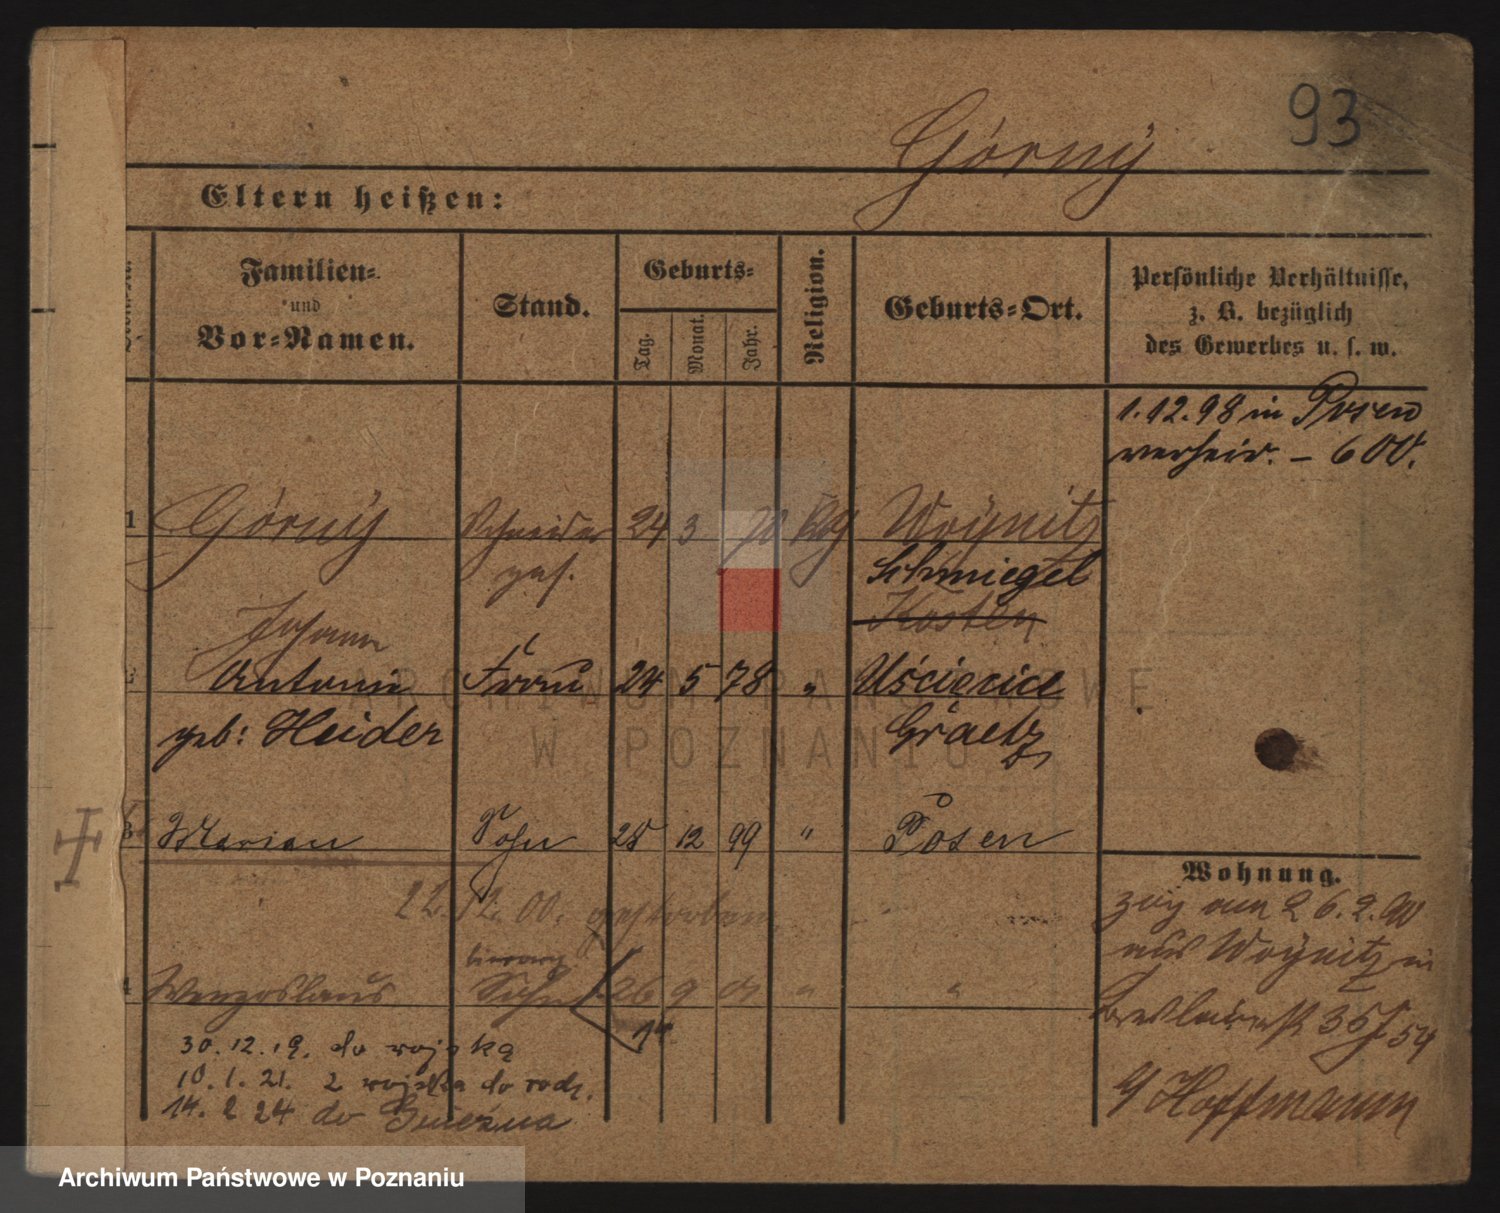 93
Górný
Eltern heißen:
Familien= und Vor=Namen.
Stand.
Geburts=
Tag.
Monat.
Jahr.
Religion.
Geburts=Ort.
Persönliche Verhältnisse,
z. B. bezüglich
des Gewerbes u. s. w.
1.12.98 in Posen
verheir. – 600.
1 Górný Schneider 24 3 70 Woýnitz
ges. Schmiegel
Johann Kosten
Antonie Frau 24 5 78 " Uścięcice
geb: Heider Graetz
3 Marian Sohn 28 12 99 " Posen
22.12.00. gestorben
Wohnung.
zug am 26.2.90
aus Woýnitz in
4 Wenzeslaus Sohn 26 9 " "
14
36 54
30.12.19. do wojska
10.1.21. z wojska do rodz.
14. 2 24 do Gniezna
Hoffmann
ARCHIWUM PAŃSTWOWE
W POZNANIU
Archiwum Państwowe w Poznaniu